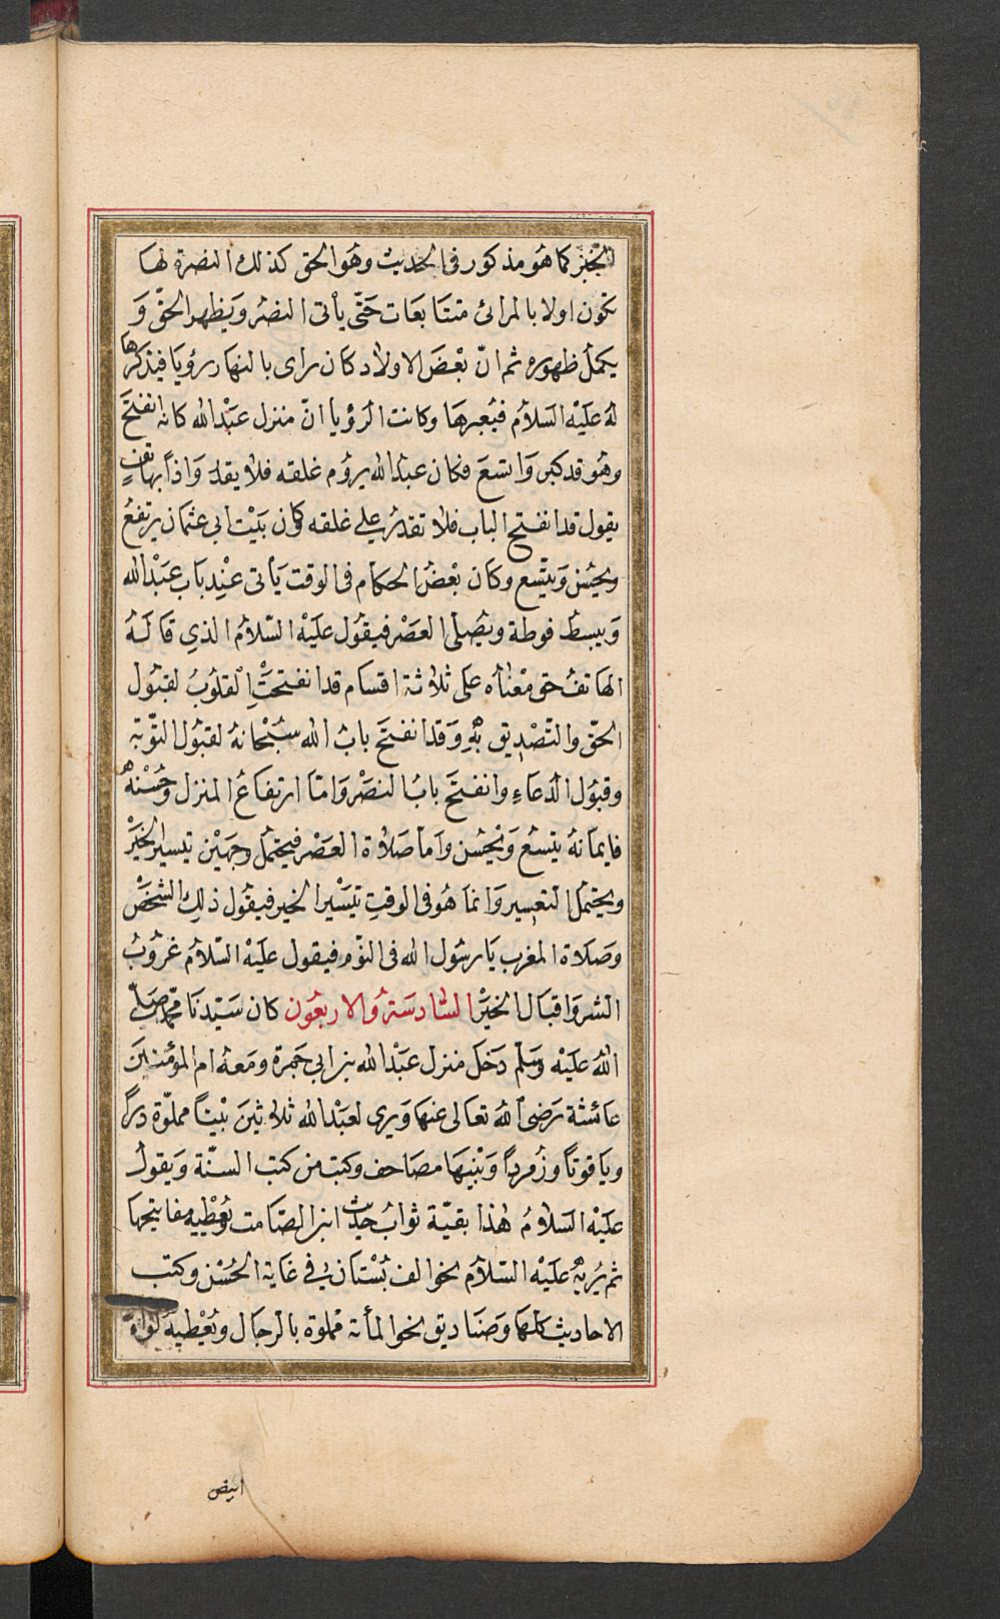 الخبز كما هو مذكور فى الحديث وهو الحق كذلك النصرة لها
تكون اولا بالمرائى متتابعات حَتّى يأتى النصْر وَيظهر الحقّ وَ
يكمل ظهوره ثم انّ بَعْضَ الاولاد كان راى بالنهار رؤيَا فيذكرُها
لهُ عَليْه السَلام فيعبرهَا وكانت الرؤيا انّ منزل عَبْد الله كانه انفتحَ
وهُو قد كبر وَاتسعَ فكان عبد الله يرؤم غلقه فلا يقدر وَاذا بهاتفٍ
يقول قد انفتح الباب فلا تقدرُ على غلقه وكان بَيْت ابى عثمان يرتفعُ
ويحسُن وَيتّسع وكان بعْضُ الحكام فى الوقت يَأتى عنِد باب عَبْد الله
وَيبسط فوطة ويُصلى العصْر فيقُول عليْه السّلامُ الذى قالهُ
الهاتفُ حق مَعْناه على ثلاثة اقسام قد انفتحَتْ القلُوبُ لقبُول
الحقّ والتصْديق بهِ وَقد انفتحَ بابُ الله سُبْحانهُ لقبُول التّوبَة
وقبُول الدّعاءِ وانفتحَ بابُ النصْر وَامّا ارتفاعُ المنزل وحُسْنهُ
فايمانهُ يتسعُ وَيحْسُن وَاما صَلاة العَصْر فيحتمل وجهَيْن تيسير الخيْر
ويحتمل التعسِير وَانما هُو فى الوقتِ تيَسْير الخير فيقُول ذلِك الشَخصْ
وَصَلاة المغرب يَا رسُول الله فى النوْم فيقول عليْه السّلامُ غرُوبُ
الشر وَاقبَال الخيْر السَّادسَةُ وَالاربعُون كان سَيّدنَا محمّد صَلّى
اللهُ عَليْه وَسَلم دَخل منزل عَبْد الله بن ابى جَمرة ومَعهُ ام المؤمنينَ
عَائشة رَضى اللهُ تعالى عنهَا وَيرى لعَبْد الله ثلاثينَ بَيتاً مملوّة درًا
ويَاقوتاً وزُمردًا وَبَيْنهَا مصَاحف وكتب من كتب السنّة وَيقولُ
عَليْه السَلامُ هٰذا بقيّة ثوابُ حدِيْث ابن الصّامت وَيُعْطِيه مفاتيحهَا
ثم يُريهُ عَليْه السّلام نحو الف بُسْتان فى غايَة الحُسْن وكتب
الاحاديث كلهَا وَصَنَاديق نحو المأة ممْلوة بالرجال وَيُعْطيهُ لوَاء
ابيض